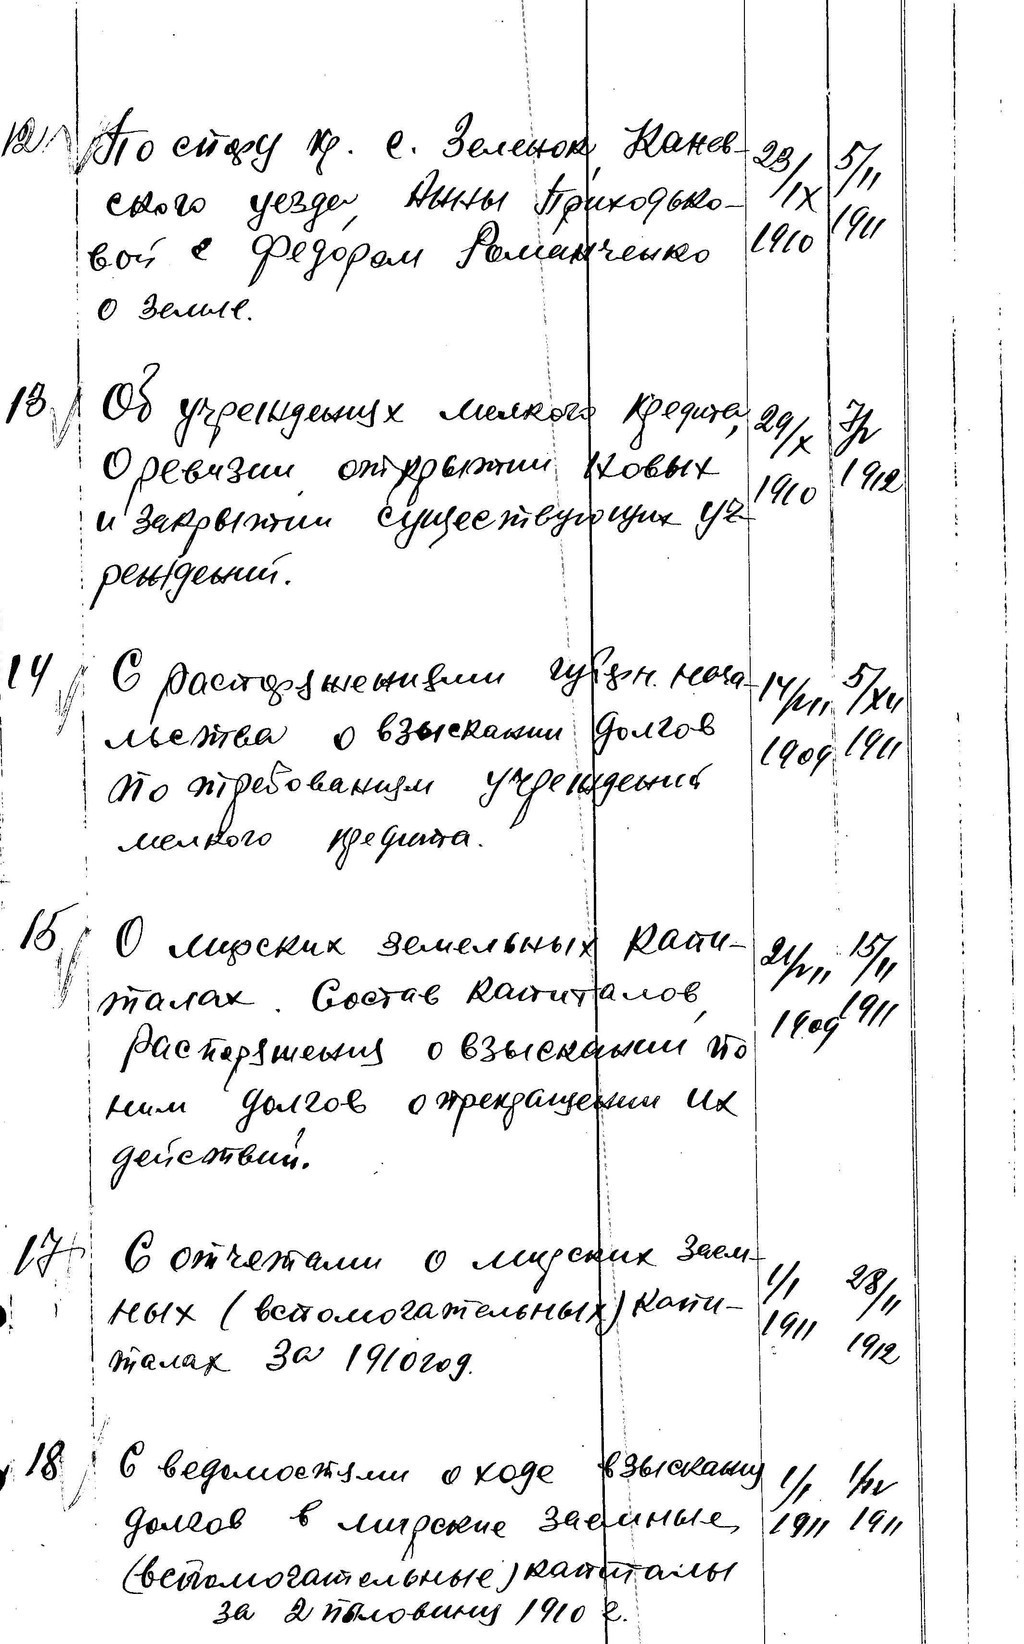 12 По спору кр. с. Зеленок, Канев- 23/IX 5/II
ского уезда, Анны Приходько- 1910 1911
вой с Федором Романченко
о земле.
13 Об учреждениях мелкого кредита, 29/X
О ревизии открытии новых 1910 1912
и закрытии существующих уч-
реждений.
14 С распоряжениями губерн. нача- 14/VII 5/XII
льства о взыскании долгов 1909 1911
по требованиям учреждений
мелкого кредита.
15 О мирских земельных капи- 21/VII 15/II
талах. Состав капиталов, 1909 1911
распоряжения о взыскании по
ним долгов о прекращении их
действий.
17 С отчетами о мирских заем- 1/I 28/II
ных (вспомогательных) капи- 1911 1912
талах за 1910 год.
18 С ведомостями о ходе взыскания 1/I
долгов в мирские заемные 1911 1911
(вспомогательные) капиталы
за 2 половину 1910 г.